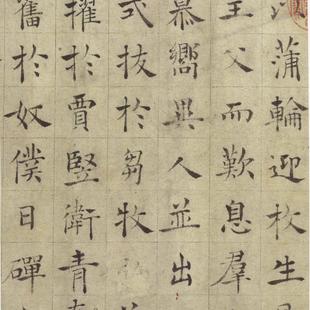 蒲輪迎枚生
主父而歎息羣
慕嚮異人並出
式拔於芻牧弘
擢於賈豎衛青
奮於奴僕日磾